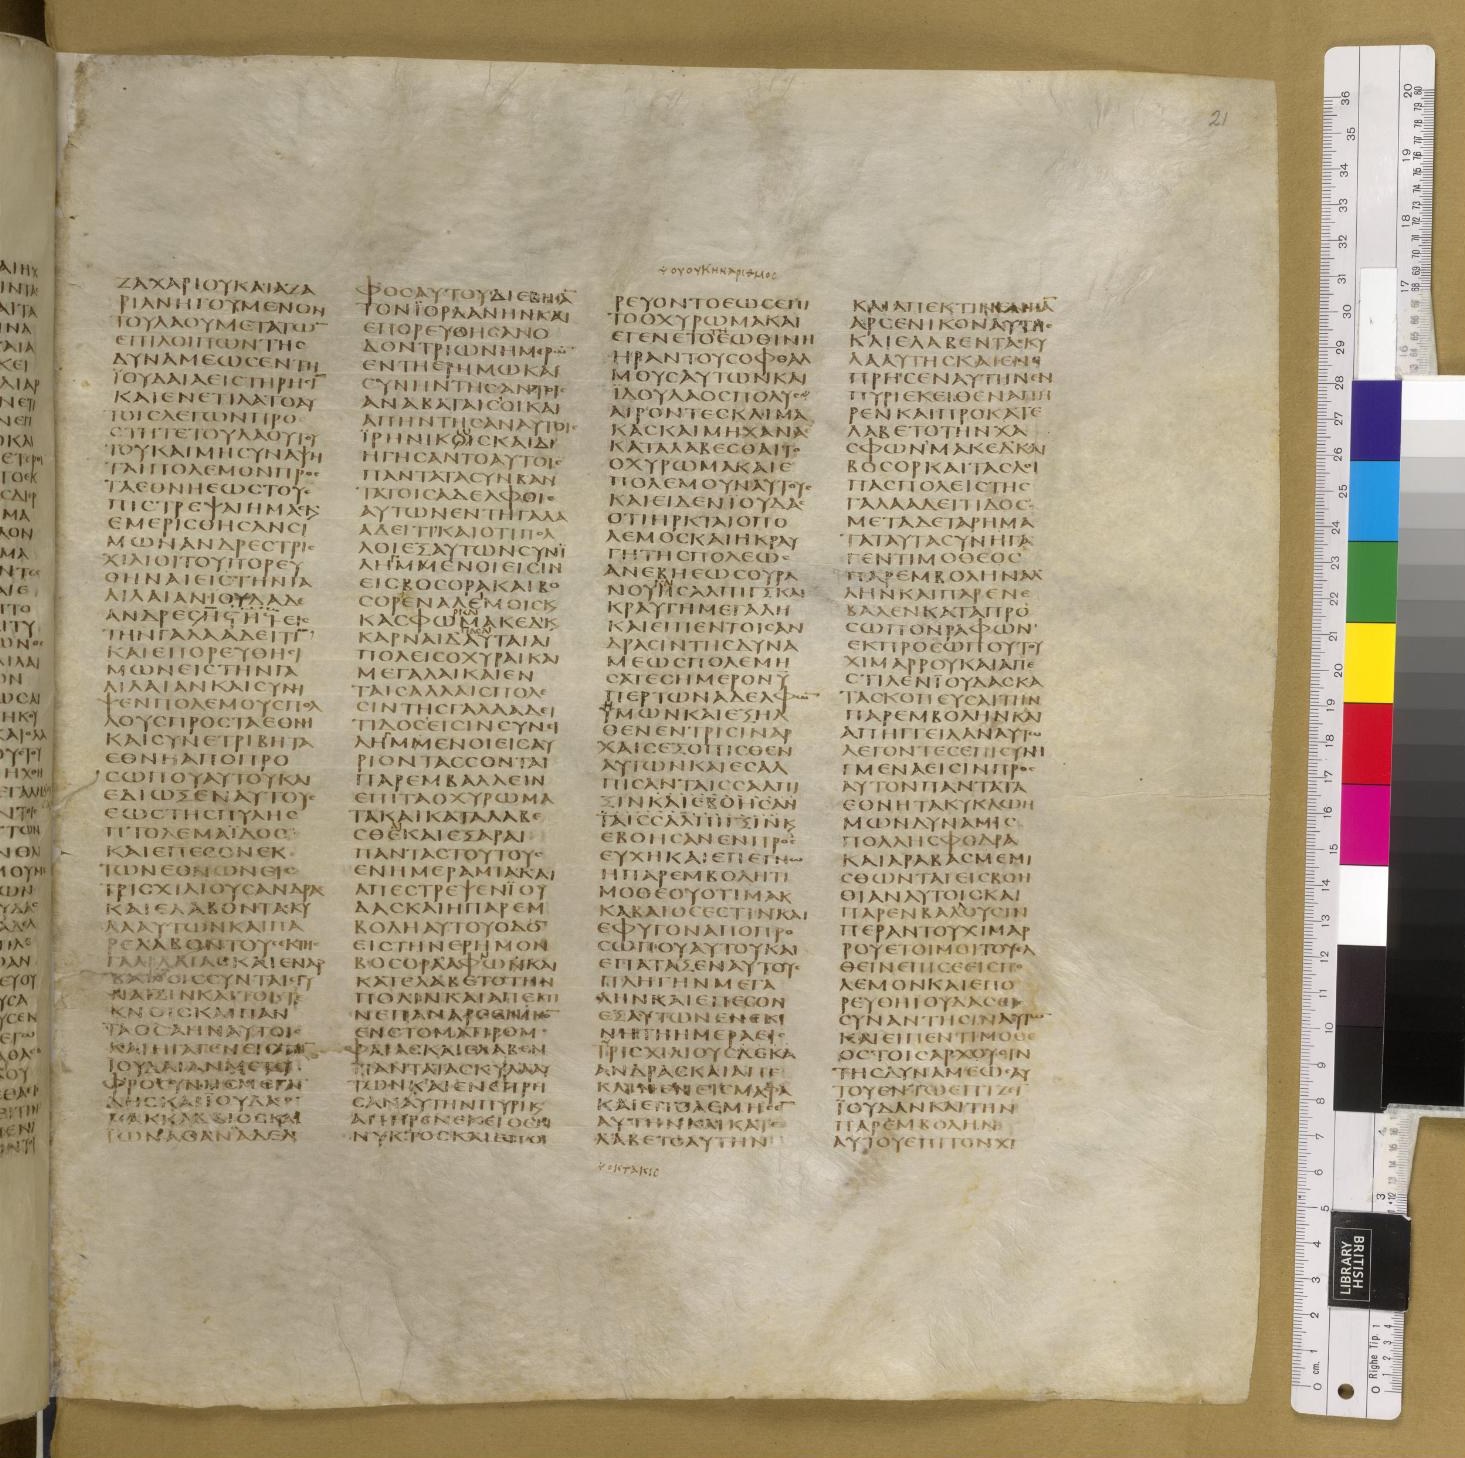 ΖΑΧΑΡΙΟΥΚΑΙΑΖΑ
ΡΙΑΝΗΓΟΥΜΕΝΟΝ
ΤΟΥΛΑΟΥΜΕΤΑΤΩ̅
ΕΠΙΛΟΙΠΩΝΤΗϹ
ΔΥΝΑΜΕΩϹΕΝΤΗ
ΪΟΥΔΑΙΑΕΙϹΤΗΡΗϹΙ̅
ΚΑΙΕΝΕΤΙΛΑΤΟΑΥ
ΤΟΙϹΛΕΓΩΝΠΡΟ
ϹΤΗΤΕΤΟΥΛΑΟΥΤΟΥ
ΤΟΥΚΑΙΜΗϹΥΝΑΨΗ
ΤΑΙΠΟΛΕΜΟΝΠΡΟϹ
ΤΑΕΘΝΗΕΩϹΤΟΥΕ
ΠΙϹΤΡΕΨΑΙΗΜΑϹΚ
ΕΜΕΡΙϹΘΗϹΑΝϹΙ
ΜΩΝΑΝΔΡΕϹΤΡΙϹ
ΧΙΛΙΟΙΤΟΥΠΟΡΕΥ
ΘΗΝΑΙΕΙϹΤΗΝΓΑ
ΛΙΛΑΙΑΝΙΟΥΔΑΔΕ
ΑΝΔΡΕϹΗΕΙϹ
ΤΗΝΓΑΛΑΑΔΕΙΤΙ̅
ΚΑΙΕΠΟΡΕΥΘΗϹΙ
ΜΩΝΕΙϹΤΗΝΓΑ
ΛΙΛΑΙΑΝΚΑΙϹΥΝΗ
ΨΕΝΠΟΛΕΜΟΥϹΠΟΛ
ΛΟΥϹΠΡΟϹΤΑΕΘΝΗ
ΚΑΙϹΥΝΕΤΡΙΒΗΤΑ
ΕΘΝΗΑΠΟΠΡΟ
ϹΩΠΟΥΑΥΤΟΥΚΑΙ
ΕΔΙΩΞΕΝΑΥΤΟΥϹ
ΕΩϹΤΗϹΠΥΛΗϹ
ΠΤΟΛΕΜΑΪΔΟϹ
ΚΑΙΕΠΕϹΟΝΕΚ
ΤΩΝΕΘΝΩΝΕΙϹ
ΤΡΙϹΧΙΛΙΟΥϹΑΝΔΡΑϹ
ΚΑΙΕΛΑΒΟΝΤΑϹΚΥ
ΛΑΑΥΤΩΝΚΑΙΠΑ
ΡΕΛΑΒΟΝΤΟΥϹΕΚΤΗϹ
ΓΑΛΙΛΑΙΑϹΚΑΙΕΝΑΡ
ΒΑΚΤΟΙϹϹΥΝΤΑΙϹΓΥ
ΝΑΙΞΙΝΚΑΙΤΟΙϹΤΕ
ΚΝΟΙϹΚΑΙΠΑΝ
ΤΑΟϹΑΗΝΑΥΤΟΙϹ
ΚΑΙΗΓΑΓΕΝΕΙϹΤΗ̅
ΙΟΥΔΑΙΑΝΜΕΤΕΥ
ΦΡΟϹΥΝΗϹΜΕΓΑ
ΛΗϹΚΑΙΙΟΥΔΑϹΟ
ΜΑΚΚΑΒΑΙΟϹΚΑΙ
ΙΩΝΑΘΑΝΑΔΕΛ
ΦΟϹΑΥΤΟΥΔΙΕΒΗϹΑ̅
ΤΟΝΪΟΡΔΑΝΗΝΚΑΙ
ΕΠΟΡΕΥΘΗϹΑΝΟ
ΔΟΝΤΡΙΩΝΗΜΕΡΩ̅
ΕΝΤΗΕΡΗΜΩΚΑΙ
ϹΥΝΗΝΤΗϹΑΝΤΟΙϹ
ΑΝΑΒΑΤΑΙϹΟΙΚΑΙ
ΑΠΗΝΤΗϹΑΝΑΥΤΟΙϹ
ΪΡΗΝΙΚΟΙϹΚΑΙΔΙ
ΗΓΗϹΑΝΤΟΑΥΤΟΙϹ
ΠΑΝΤΑΤΑϹΥΝΒΑΝ
ΤΑΤΟΙϹΑΔΕΛΦΟΙϹ
ΑΥΤΩΝΕΝΤΗΓΑΛΑ
ΑΔΕΙΤΙΚΑΙΟΤΙΠΟΛ
ΛΟΙΕΞΑΥΤΩΝϹΥΝΪ
ΛΗΜΜΕΝΟΙΕΙϹΙΝ
ΕΙϹΒΟϹΟΡΑΚΑΙΒΟ
ϹΟΡΕΝΑΛΕΜΟΙϹΚ
ΚΑϹΦΩΜΑΚΕΔΚ
ΚΑΡΝΑΙΔΑΥΤΑΙΑΙ
ΠΟΛΕΙϹΟΧΥΡΑΙΚΑΙ
ΜΕΓΑΛΑΙΚΑΙΕΝ
ΤΑΙϹΑΛΛΑΙϹΠΟΛΕ
ϹΙΝΤΗϹΓΑΛΑΑΔΕΙ
ΤΙΔΟϹΕΙϹΙΝϹΥΝΕΙ
ΛΗΜΜΕΝΟΙΕΙϹΑΥ
ΡΙΟΝΤΑϹϹΟΝΤΑΙ
ΠΑΡΕΜΒΑΛΛΕΙΝ
ΕΠΙΤΑΟΧΥΡΩΜΑ
ΤΑΚΑΙΚΑΤΑΛΑΒΕ
ϹΘΕΚΑΙΕΞΑΡΑΙ
ΠΑΝΤΑϹΤΟΥΤΟΥϹ
ΕΝΗΜΕΡΑΜΙΑΚΑΙ
ΑΠΕϹΤΡΕΨΕΝΪΟΥ
ΔΑϹΚΑΙΗΠΑΡΕΜ
ΒΟΛΗΑΥΤΟΥΟΔΟ̅
ΕΙϹΤΗΝΕΡΗΜΟΝ
ΒΟϹΟΡΑΑΦΩΝΚΑΙ
ΚΑΤΕΛΑΒΕΤΟΤΗΝ
ΠΟΛΙΝΚΑΙΑΠΕΚΤΙ
ΝΕΠΑΝΑΡϹΕΝΙΚΟ̅
ΕΝϹΤΟΜΑΤΙΡΟΜ
ΦΑΙΑϹΚΑΙΕΛΑΒΕΝ
ΠΑΝΤΑΤΑϹΚΥΛΑΑΥ
ΤΩΝΚΑΙΕΝΕΠΡΗ
ϹΑΝΑΥΤΗΝΠΥΡΙΚ
ΑΠΗΡΕΝΕΚΕΙΘΕΝ
ΝΥΚΤΟϹΚΑΙΕΠΟ
ΟΥΟΥΚΗΝΑΡΙΘΜΟϹ
ΡΕΥΟΝΤΟΕΩϹΕΠΙ
ΤΟΟΧΥΡΩΜΑΚΑΙ
ΕΓΕΝΕΤΟΕΩΘΙΝΗ
ΗΡΑΝΤΟΥϹΟΦΘΑΛ
ΜΟΥϹΑΥΤΩΝΚΑΙ
ΪΔΟΥΛΑΟϹΠΟΛΥϹ
ΑΙΡΟΝΤΕϹΚΛΙΜΑ
ΚΑϹΚΑΙΜΗΧΑΝΑϹ
ΚΑΤΑΛΑΒΕϹΘΑΙΤΟ
ΟΧΥΡΩΜΑΚΑΙΕ
ΠΟΛΕΜΟΥΝΑΥΤΟΥϹ
ΚΑΙΕΙΔΕΝΪΟΥΔΑϹ
ΟΤΙΗΡΚΤΑΙΟΠΟ
ΛΕΜΟϹΚΑΙΗΚΡΑΥ
ΓΗΤΗϹΠΟΛΕΩϹ
ΑΝΕΒΗΕΩϹΟΥΡΑ
ΝΟΥΗϹΑΛΠΙΓΞΚΑΙ
ΚΡΑΥΓΗΜΕΓΑΛΗ
ΚΑΙΕΙΠΕΝΤΟΙϹΑΝ
ΔΡΑϹΙΝΤΗϹΔΥΝΑ
ΜΕΩϹΠΟΛΕΜΗ
ϹΑΤΕϹΗΜΕΡΟΝΫ
ΠΕΡΤΩΝΑΔΕΛΦΩ̅
ΫΜΩΝΚΑΙΕΞΗΛ
ΘΕΝΕΝΤΡΙϹΙΝΑΡ
ΧΑΙϹΕΞΟΠΙϹΘΕΝ
ΑΥΤΩΝΚΑΙΕϹΑΛ
ΠΙϹΑΝΤΑΙϹϹΑΛΠΙ
ΞΙΝΚΑΙΕΒΟΗϹΑΝ
ΤΑΙϹϹΑΛΠΙΓΞΙΝΚ
ΕΒΟΗϹΑΝΕΝΠΡΟϹ
ΕΥΧΗΚΑΙΕΠΕΓΝΩ
ΗΠΑΡΕΜΒΟΛΗΤΙ
ΜΟΘΕΟΥΟΤΙΜΑΚ
ΚΑΒΑΙΟϹΕϹΤΙΝΚΑΙ
ΕΦΥΓΟΝΑΠΟΠΡΟ
ϹΩΠΟΥΑΥΤΟΥΚΑΙ
ΕΠΑΤΑΞΕΝΑΥΤΟΥϹ
ΠΛΗΓΗΝΜΕΓΑ
ΛΗΝΚΑΙΕΠΕϹΟΝ
ΕΞΑΥΤΩΝΕΝΕΚΙ
ΝΗΤΗΗΜΕΡΑΕΙϹ
ΤΡΙϹΧΙΛΙΟΥϹΔΕΚΑ
ΑΝΔΡΑϹΚΑΙΑΠΕ
ΚΛΙΝΕΝΕΙϹΜΑΦΑ
ΚΑΙΕΠΟΛΕΜΗϹΕ̅
ΑΥΤΗΝΚΑΙΚΑΤΕ
ΛΑΒΕΤΟΑΥΤΗΝ
ΟΚΤΑΚΙϹ
ΚΑΙΑΠΕΚΤΙΝΕΝΠΑ̅
ΑΡϹΕΝΙΚΟΝΑΥΤΗϹ
ΚΑΙΕΛΑΒΕΝΤΑϹΚΥ
ΛΑΑΥΤΗϹΚΑΙΕΝΕ
ΠΡΗϹΕΝΑΥΤΗΝΕΝ
ΠΥΡΙΕΚΕΙΘΕΝΑΠΗ
ΡΕΝΚΑΙΠΡΟΚΑΤΕ
ΛΑΒΕΤΟΤΗΝΧΑ
ϹΦΩΝΜΑΚΕΔΚΑΙ
ΒΟϹΟΡΚΑΙΤΑϹΛΟΙ
ΠΑϹΠΟΛΕΙϹΤΗϹ
ΓΑΛΑΑΔΕΙΤΙΔΟϹ
ΜΕΤΑΔΕΤΑΡΗΜΑ
ΤΑΤΑΥΤΑϹΥΝΗΓΑ
ΓΕΝΤΙΜΟΘΕΟϹ
ΠΑΡΕΜΒΟΛΗΝΑΛ
ΛΗΝΚΑΙΠΑΡΕΝΕ
ΒΑΛΕΝΚΑΤΑΠΡΟ
ϹΩΠΟΝΡΑΦΩΝ
ΕΚΠΡΟϹΩΠΟΥΤΟΥ
ΧΙΜΑΡΡΟΥΚΑΙΑΠΕ
ϹΤΙΛΕΝΪΟΥΔΑϹΚΑ
ΤΑϹΚΟΠΕΥϹΑΙΤΗΝ
ΠΑΡΕΜΒΟΛΗΝΚΑΙ
ΑΠΗΓΓΕΙΛΑΝΑΥΤΩ
ΛΕΓΟΝΤΕϹΕΠΙϹΥΝΗ
ΓΜΕΝΑΕΙϹΙΝΠΡΟϹ
ΑΥΤΟΝΠΑΝΤΑΤΑ
ΕΘΝΗΤΑΚΥΚΛΩΗ
ΜΩΝΔΥΝΑΜΙϹ
ΠΟΛΛΗϹΦΟΔΡΑ
ΚΑΙΑΡΑΒΑϹΜΕΜΙ
ϹΘΩΝΤΑΙΕΙϹΒΟΗ
ΘΙΑΝΑΥΤΟΙϹΚΑΙ
ΠΑΡΕΝΒΑΛΟΥϹΙΝ
ΠΕΡΑΝΤΟΥΧΙΜΑΡ
ΡΟΥΕΤΟΙΜΟΙΤΟΥΕΛ
ΘΕΙΝΕΠΙϹΕΕΙϹΠΟ
ΛΕΜΟΝΚΑΙΕΠΟ
ΡΕΥΘΗΙΟΥΔΑϹΕΙϹ
ϹΥΝΑΝΤΗϹΙΝΑΥΤΩ̅
ΚΑΙΕΙΠΕΝΤΙΜΟΘΕ
ΟϹΤΟΙϹΑΡΧΟΥϹΙΝ
ΤΗϹΔΥΝΑΜΕΩϹΑΥ
ΤΟΥΕΝΤΩΕΓΓΙΖΕΙ
ΪΟΥΔΑΝΚΑΙΤΗΝ
ΠΑΡΕΜΒΟΛΗΝ
ΑΥΤΟΥΕΠΙΤΟΝΧΙ
21
BRITISH
LIBRARY